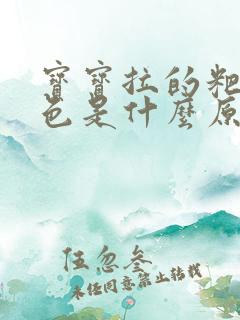 寶寶拉的粑
色是什麼原
伍忽叁
未经同意禁止转载